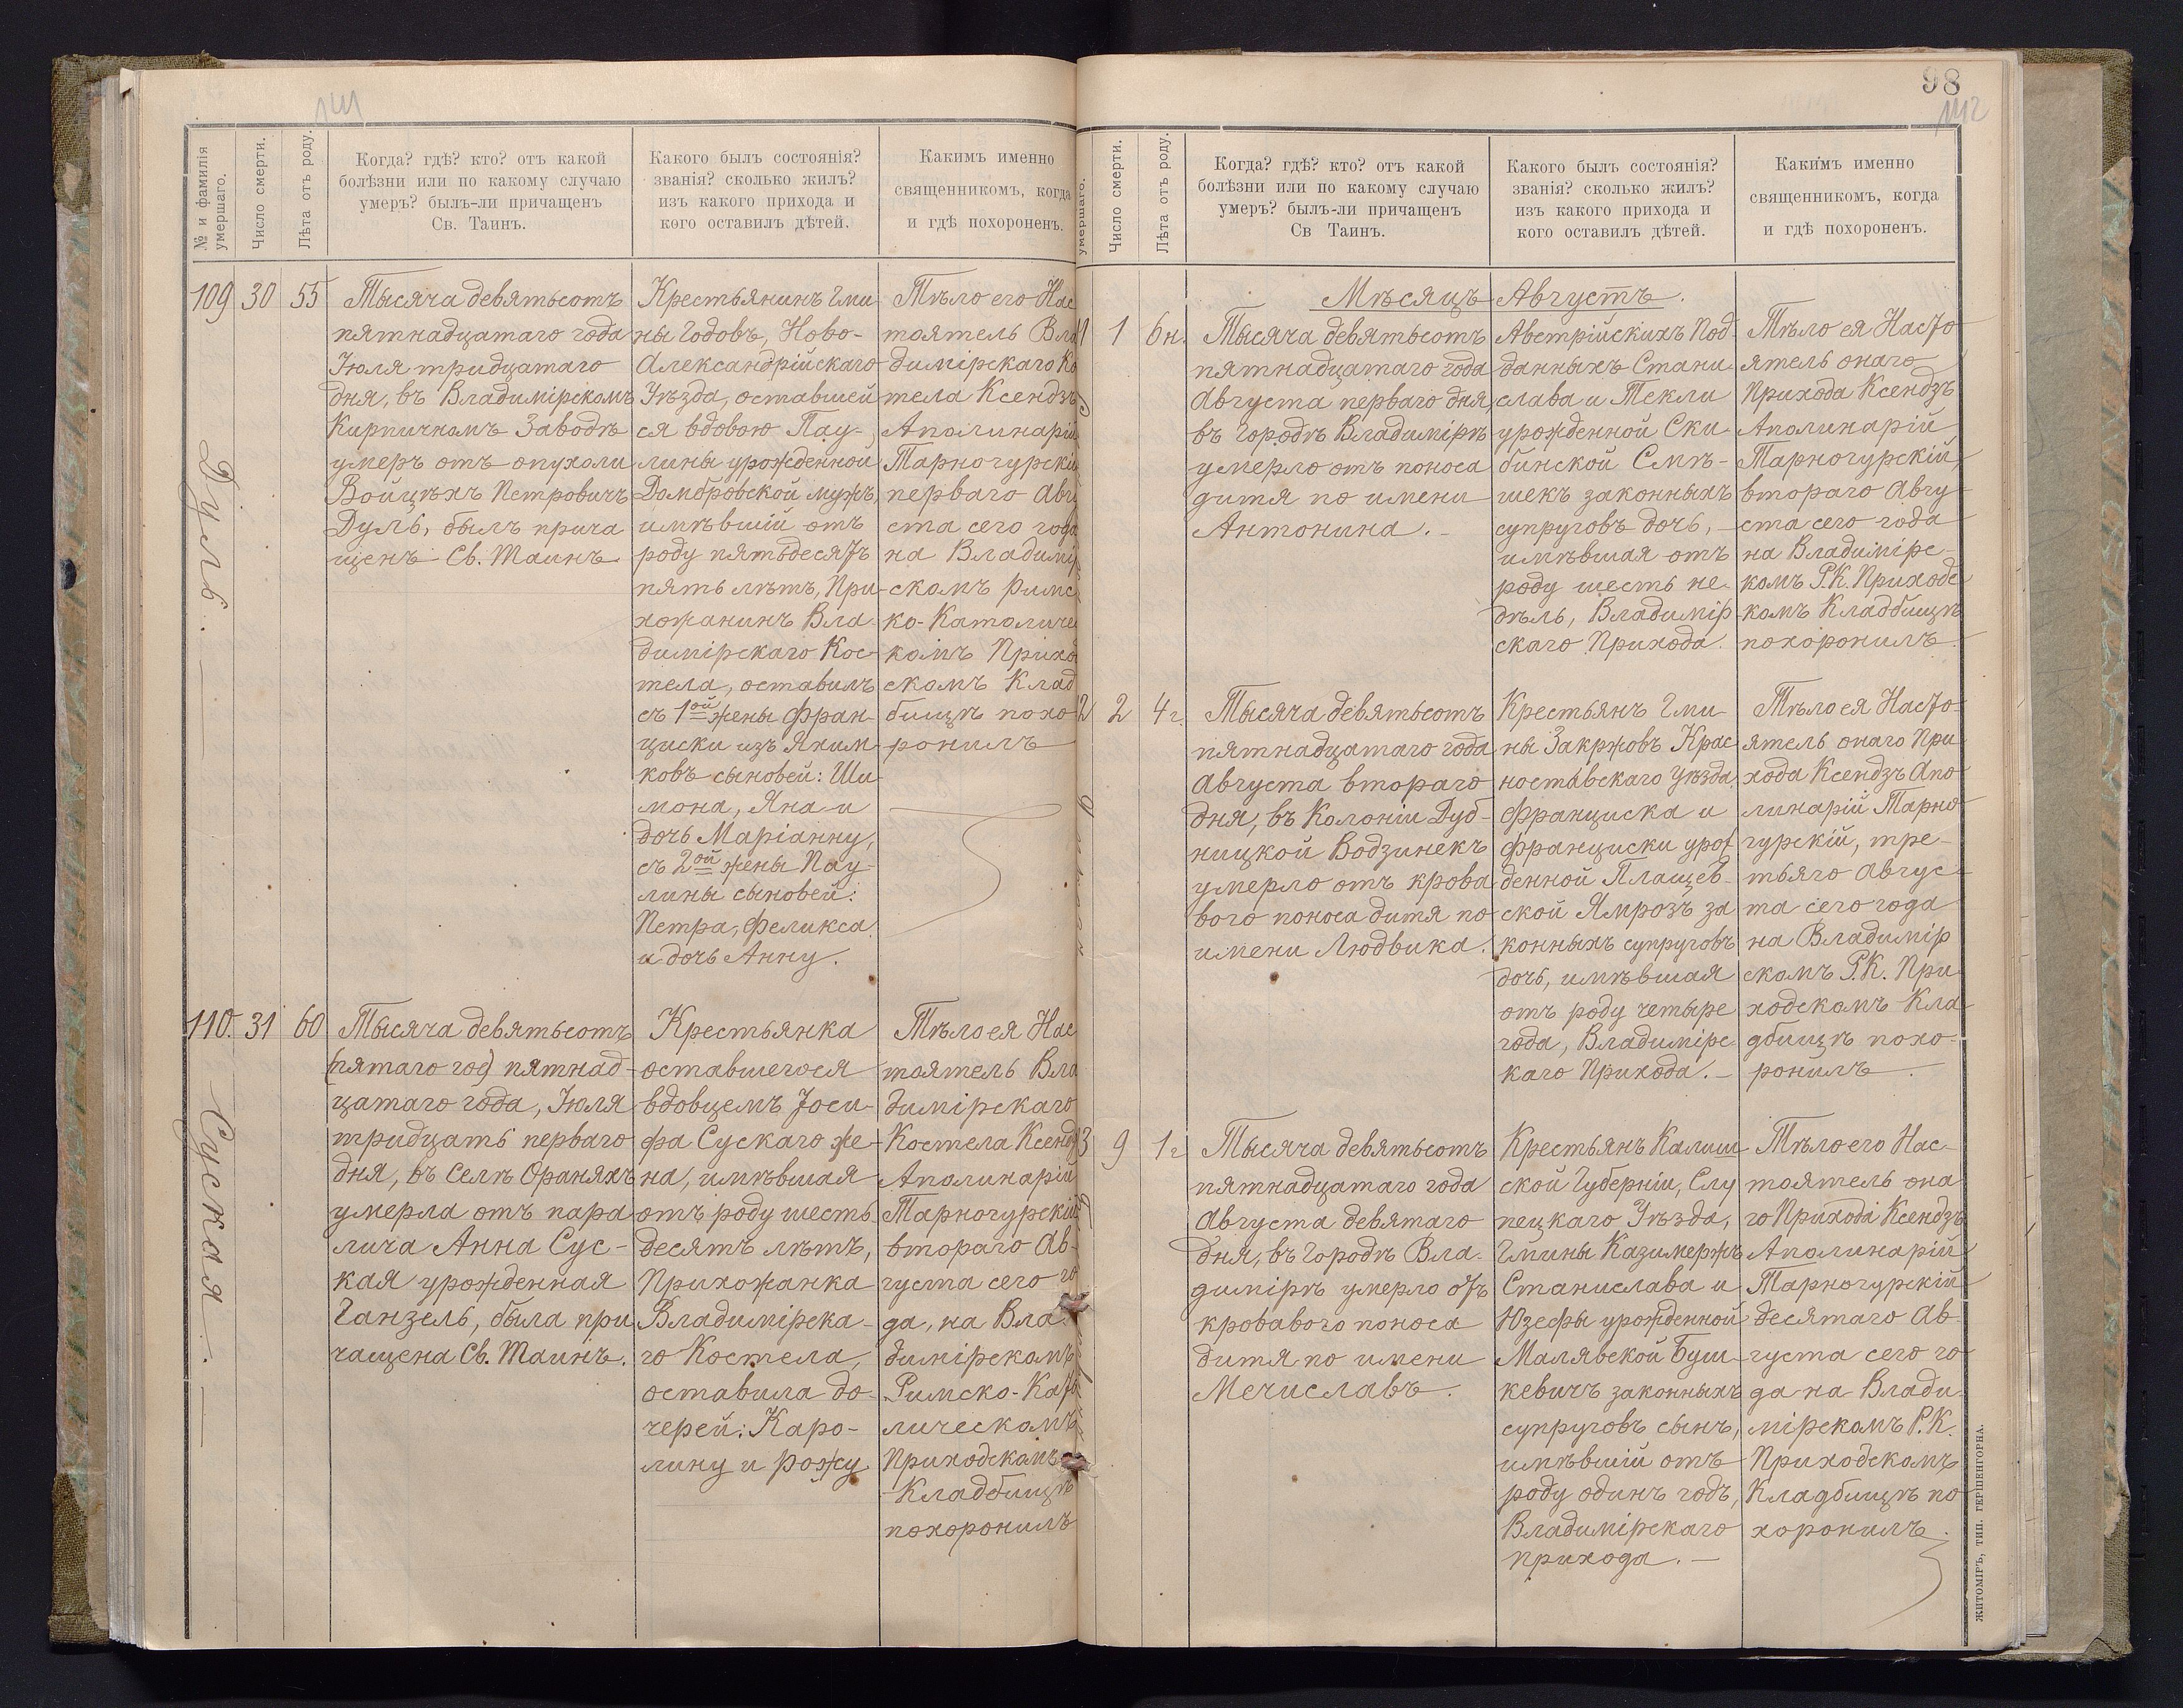 141
№ и фамилія умершаго.
Число смерти.
Лѣта отъ роду.
Когда? гдѣ? кто? отъ какой
болѣзни или по какому случаю
умеръ? былъ-ли причащенъ
Св. Таинъ.
Какого былъ состоянія?
званія? сколько жилъ?
изъ какого прихода и
кого оставилъ дѣтей.
Какимъ именно
священникомъ, когда
и гдѣ похороненъ.
109 30 55
Дуль.
Тысяча девятьсотъ
пятнадцатаго года
Іюля тридцатаго
дня, въ Владимірскомъ
Кирпичномъ Заводѣ
умеръ отъ опухоли
Войцѣхъ Петровичъ
Дуль, былъ прича
щенъ Св. Таинъ
Крестьянинъ Гми
ны Годовъ, Ново-
Александрійскаго
Уѣзда, оставшей
ся вдовою Пау-
лины урожденной
Домбровской мужъ,
имѣвшій отъ
роду пятьдесятъ
пять лѣтъ, При-
хожанинъ Вла-
димірскаго Кос-
тела, оставилъ
съ 1ой жены Фран-
циски изъ Яким
ковъ сыновей: Ши
мона, Яна и
дочь Маріанну,
съ 2ой жены Пау-
лины сыновей:
Петра, Феликса
и дочь Анну.
Тѣло его Нас
тоятель Вла
димірскаго Ко
тела Ксендзъ
Аполинарій
Тарногурскій
перваго Авгу
ста сего года
на Владимір
скомъ Римс
ко-Католичес
комъ Приход
скомъ Клад
бищѣ похо
ронилъ
110. 31 60
Суская.
Тысяча девятьсотъ
(пятаго год) пятнад-
цатаго года, Іюля
тридцать перваго
дня, въ Селѣ Ораняхъ
умерла отъ пара
лича Анна Сус-
кая урожденная
Ганзель, была при
чащена Св. Таинъ.
Крестьянка
оставшегося
вдовцемъ Іоси-
фа Сускаго же-
на, имѣвшая
отъ роду шесть
десятъ лѣтъ,
Прихожанка
Владимірска-
го Костела,
оставила до-
черей: Каро-
лину и Рожу
Тѣло ея Нас
тоятель Вла
димірскаго
Костела Ксендзъ
Аполинарій
Тарногурскій
втораго Ав-
густа сего го
да, на Вла
димірскомъ
Римско-Като
лическомъ
Приходскомъ
Кладбищѣ
похоронилъ
98
142
умершаго.
Число смерти.
Лѣта отъ роду.
Когда? гдѣ? кто? отъ какой
болѣзни или по какому случаю
умеръ? былъ-ли причащенъ
Св Таинъ.
Какого былъ состоянія?
званія? сколько жилъ?
изъ какого прихода и
кого оставилъ дѣтей.
Какимъ именно
священникомъ, когда
и гдѣ похороненъ.
Мѣсяцъ Августъ.
1 1 6 н.
Тысяча девятьсотъ
пятнадцатаго года
Августа перваго дня,
въ Городѣ Владимірѣ
умерло отъ поноса
дитя по имени
Антонина.
Австрійскихъ Под-
данныхъ Стани
слава и Текли
урожденной Ски-
бинской Смѣ-
шекъ законныхъ
супруговъ дочь,
имѣвшая отъ
роду шесть не-
дѣль, Владимір
скаго Прихода.
Тѣло ея Насто
ятель онаго
Прихода Ксендзъ
Аполинарій
Тарногурскій,
втораго Авгу
ста сего года
на Владимірс-
комъ Р.К. Приходс
комъ Кладбищѣ
похоронилъ.
2 2 4 г.
Тысяча девятьсотъ
пятнадцатаго года
Августа втораго
дня, въ Колоніи Дуб-
ницкой Водзинекъ
умерло отъ крова
вого поноса дитя по
имени Людвика.
Крестьянъ Гми
ны Закржовъ Крас
ноставскаго Уѣзда,
Франциска и
Франциски урож
денной Плащев-
ской Ямрозъ за
конныхъ супруговъ
дочь, имѣвшая
отъ роду четыре
года, Владимірс
каго Прихода.
Тѣло ея Насто-
ятель онаго При
хода Ксендзъ Апо
линарій Тарно
гурскій, тре-
тьяго Авгус-
та сего года
на Владимір
скомъ Р.К. При
ходскомъ Кла
дбищѣ похо-
ронилъ.
3 9 1 г
Тысяча девятьсотъ
пятнадцатаго года
Августа девятаго
дня, въ Городѣ Вла-
димірѣ умерло отъ
кроваваго поноса
дитя по имени
Мечиславъ.
Крестьянъ Калиш
ской Губерніи, Слу
пецкаго Уѣзда,
Гмины Казимержъ
Станислава и
Юзефы урожденной
Малявской Буш-
кевичъ законныхъ
супруговъ сынъ,
имѣвшій отъ
роду одинъ годъ,
Владимірскаго
Прихода.
Тѣло его Нас-
тоятель она
го Прихода Ксендзъ
Аполинарій
Тарногурскій
десятаго Ав-
густа сего го
да на Влади
мірскомъ Р.К.
Приходскомъ
Кладбищѣ по
хоронилъ.
ЖИТОМІРЪ, ТИП. ГЕРШЕНГОРНА.